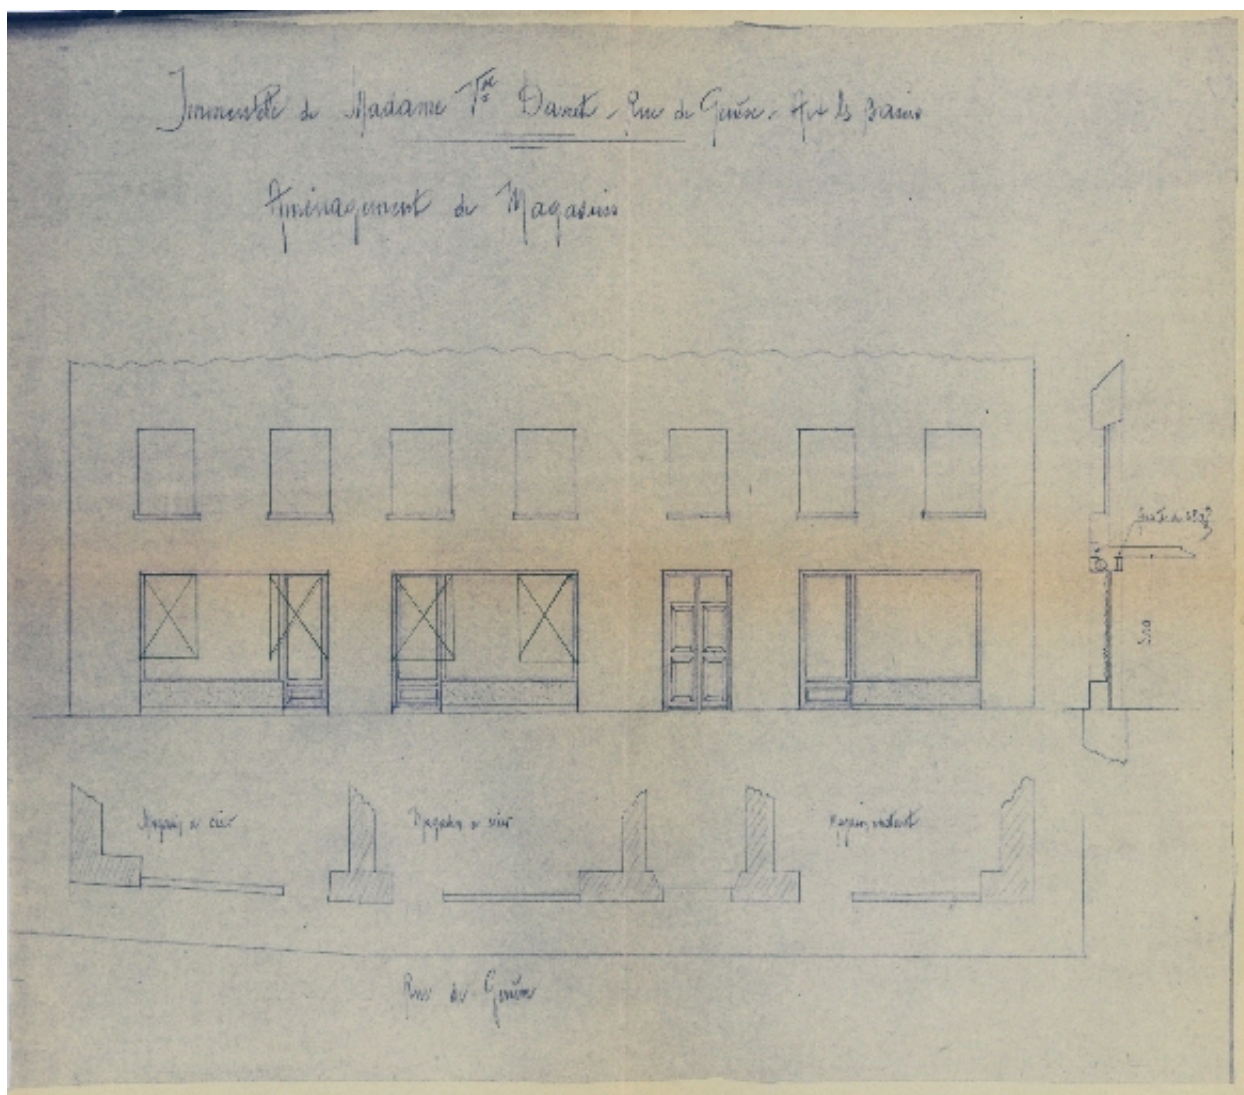 Immeuble de Madame Vve Danet - Rue de Genève - Aix les Bains
Aménagement de Magasins
Magasin à créer
Magasin à créer
Magasin existant
Rue de Genève